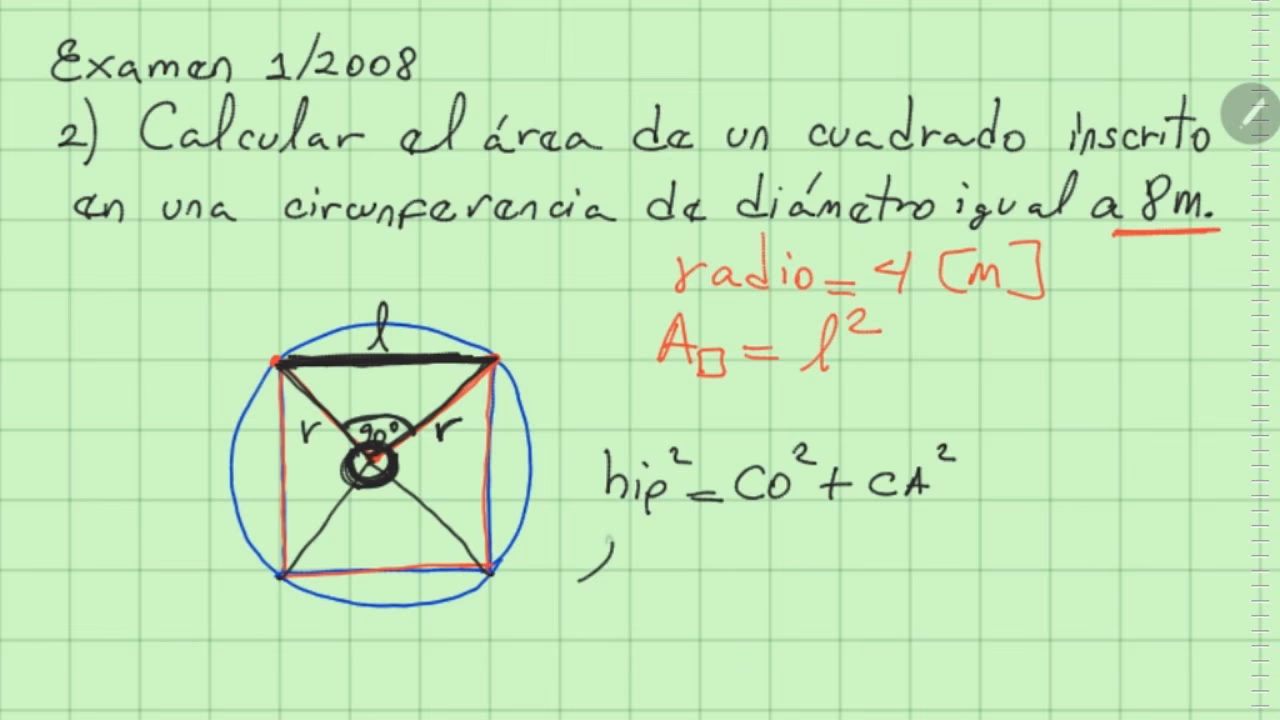 Examen 1/2008
2) Calcular el área de un cuadrado inscrito
en una circunferencia de diámetro igual a 8m.
radio = 4 [m]
A□ = l²
l
r 90° r
hip² = CO² + CA²